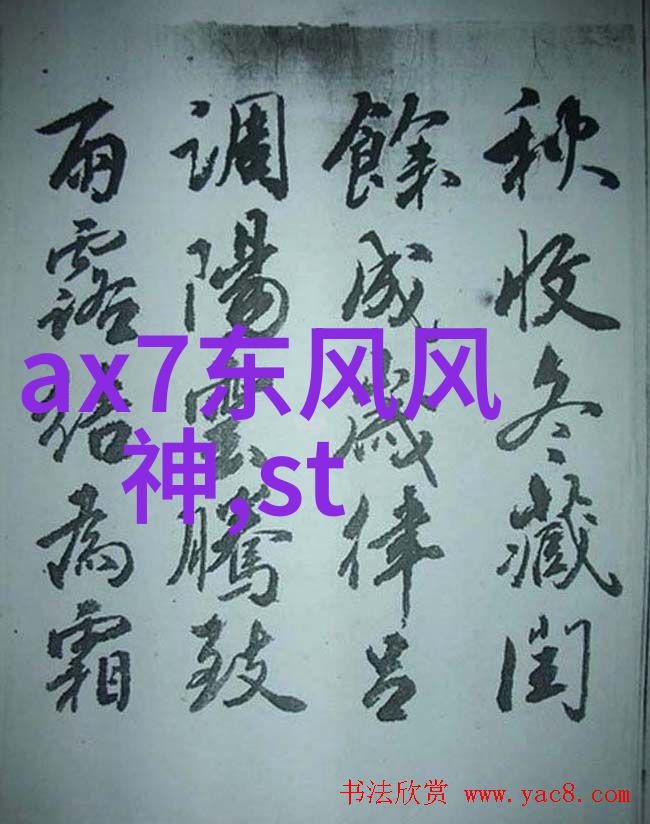 秋收冬藏閏
餘成歲律呂
調陽雲騰致
雨露結為霜
ax7东风风
神,st
书法欣赏 www.yac8.com